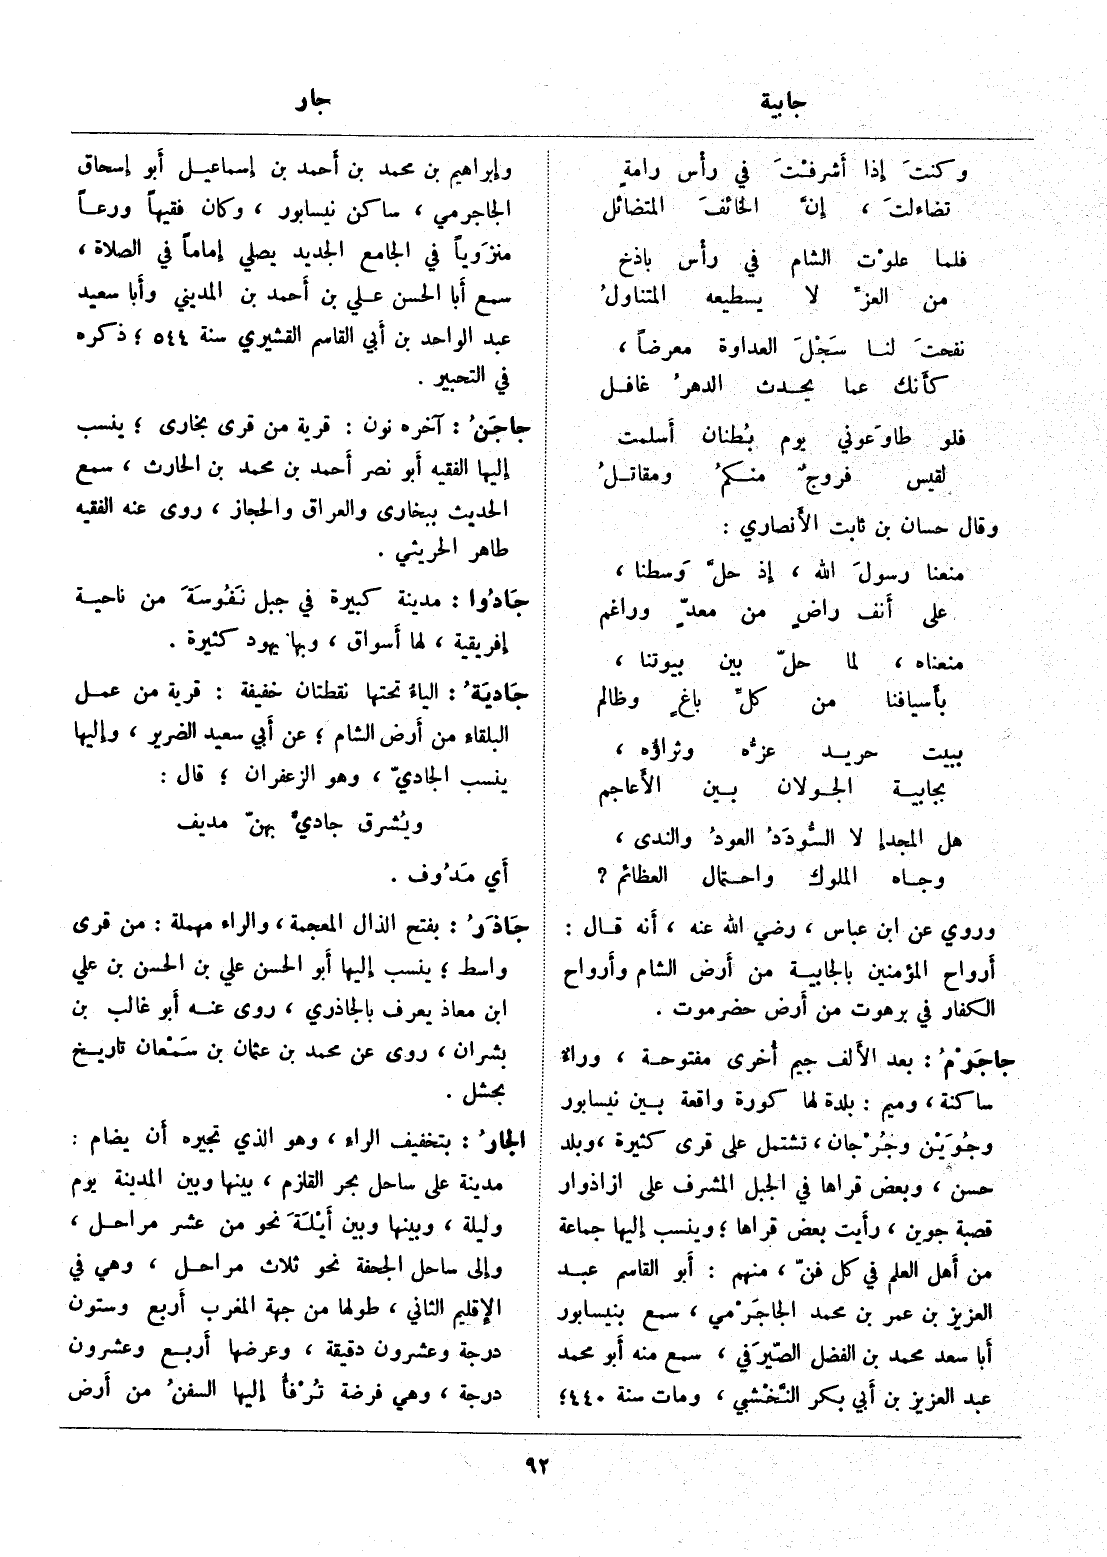 جابية
جار
وكنتَ إذا أشرفْتَ في رأس رامةٍ
تضاءلتَ ، إنَّ الخائفَ المتضائل
فلما علوْت الشام في رأس باذخ
من العزّ لا يسطيعه المتناولُ
نفحتَ لنا سَجْلَ العداوة معرضاً ،
كأنك عما يحدث الدهرُ غافل
فلو طاوَعوني يوم بُطنان أسلمت
لقيس فروجٌ منكمُ ومقاتلُ
وقال حسان بن ثابت الأنصاري :
منعنا رسولَ الله ، إذ حلَّ وَسطنا ،
على أنف راضٍ من معدٍّ وراغم
منعناه ، لما حلّ بين بيوتنا ،
بأسيافنا من كلِّ باغٍ وظالم
ببيت حريد عزُّه وثراؤه ،
بجابية الجولان بين الأعاجم
هل المجدُ إلا السُّودَدُ العودُ والندى ،
وجاه الملوك واحتمال العظائم ؟
وروي عن ابن عباس ، رضي الله عنه ، أنه قال :
أرواح المؤمنين بالجابية من أرض الشام وأرواح
الكفار في برهوت من أرض حضرموت .
جاجَرْمُ : بعد الألف جيم أخرى مفتوحة ، وراءٌ
ساكنة ، وميم : بلدة لها كورة واقعة بين نيسابور
وجُوَيْن وجُرْجان ، تشتمل على قرى كثيرة ، وبلد
حسن ، وبعض قراها في الجبل المشرف على ازاذوار
قصبة جوين ، رأيت بعض قراها ؛ وينسب إليها جماعة
من أهل العلم في كل فنّ ، منهم : أبو القاسم عبد
العزيز بن عمر بن محمد الجاجَرْمي ، سمع بنيسابور
أبا سعد محمد بن الفضل الصّيرَفي ، سمع منه أبو محمد
عبد العزيز بن أبي بكر النَّخْشبي ، ومات سنة ٤٤٠ ؛
وإبراهيم بن محمد بن أحمد بن إسماعيل أبو إسحاق
الجاجرمي ، ساكن نيسابور ، وكان فقيهاً ورعاً
منزَوياً في الجامع الجديد يصلي إماماً في الصلاة ،
سمع أبا الحسن علي بن أحمد بن المديني وأبا سعيد
عبد الواحد بن أبي القاسم القشيري سنة ٥٤٤ ؛ ذكره
في التحبير .
جاجَنُ : آخره نون : قرية من قرى بخارى ؛ ينسب
إليها الفقيه أبو نصر أحمد بن محمد بن الحارث ، سمع
الحديث ببخارى والعراق والحجاز ، روى عنه الفقيه
طاهر الحريثي .
جَادُوا : مدينة كبيرة في جبل نَفُوسَةَ من ناحية
إفريقية ، لها أسواق ، وبها يهود كثيرة .
جَاديَةُ : الياءُ تحتها نقطتان خفيفة : قرية من عمل
البلقاء من أرض الشام ؛ عن أبي سعيد الضرير ، وإليها
ينسب الجاديّ ، وهو الزعفران ؛ قال :
ويُشرق جاديٌّ بهنّ مديف
أي مَدُوف .
جَاذَرُ : بفتح الذال المعجمة ، والراء مهملة : من قرى
واسط ؛ ينسب إليها أبو الحسن علي بن الحسن بن علي
ابن معاذ يعرف بالجاذري ، روى عنه أبو غالب بن
بشران ، روى عن محمد بن عثمان بن سَمْعان تاريخ
بحشل .
الجارُ : بتخفيف الراء ، وهو الذي تجيره أن يضام :
مدينة على ساحل بحر القلزم ، بينها وبين المدينة يوم
وليلة ، وبينها وبين أَيْلَةَ نحو من عشر مراحل ،
وإلى ساحل الجحفة نحو ثلاث مراحل ، وهي في
الإقليم الثاني ، طولها من جهة المغرب أربع وستون
درجة وعشرون دقيقة ، وعرضها أربع وعشرون
درجة ، وهي فرضة تُرْفأُ إليها السفنُ من أرض
٩٢